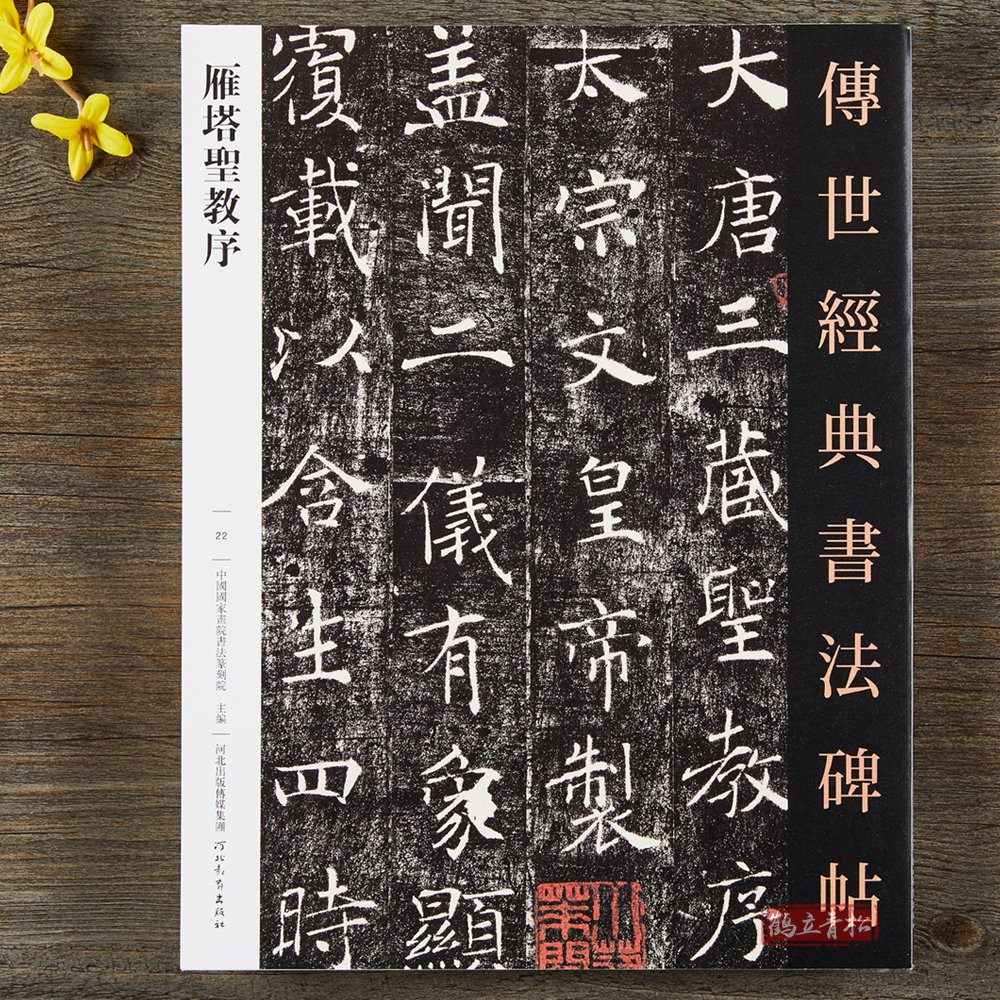 傳世經典書法碑帖
大唐三藏聖教序
太宗文皇帝製
盖聞二儀有象顯
覆載以含生四時
雁塔聖教序
22
中國國家畫院書法篆刻院 主編
河北出版傳媒集團
河北教育出版社
鶴立青松